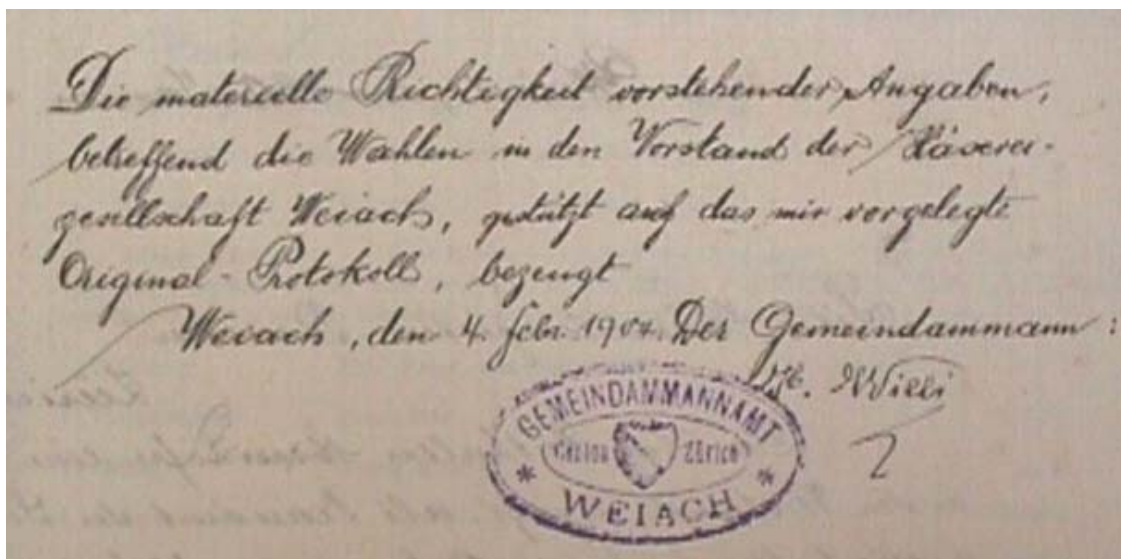 Die materielle Richtigkeit vorstehender Angaben,
betreffend die Wahlen in den Vorstand der Käserei-
gesellschaft Weiach, gestützt auf das mir vorgelegte
Original-Protokoll, bezeugt
Weiach, den 4. Febr. 1904. Der Gemeindammann:
Willi
GEMEINDAMMANNAMT
Canton Zürich
* WEIACH *